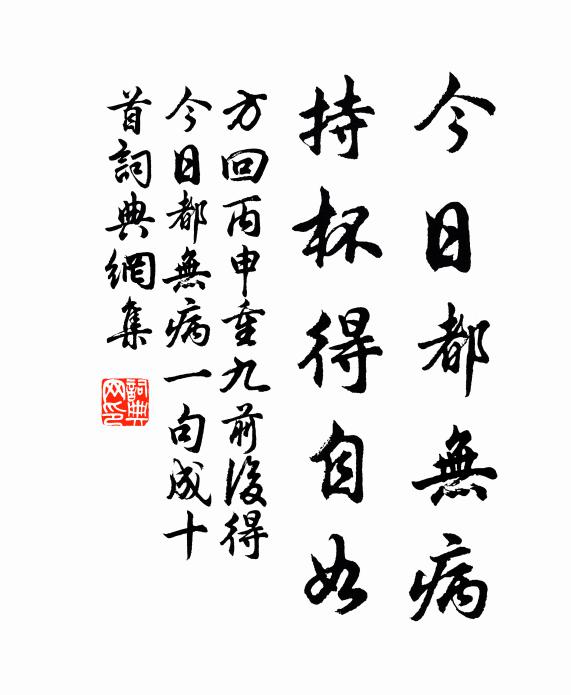 今日都無病
持杯得自如
方回丙申重九前後得
今日都無病一句成十
首詞典網集
詞典
网印